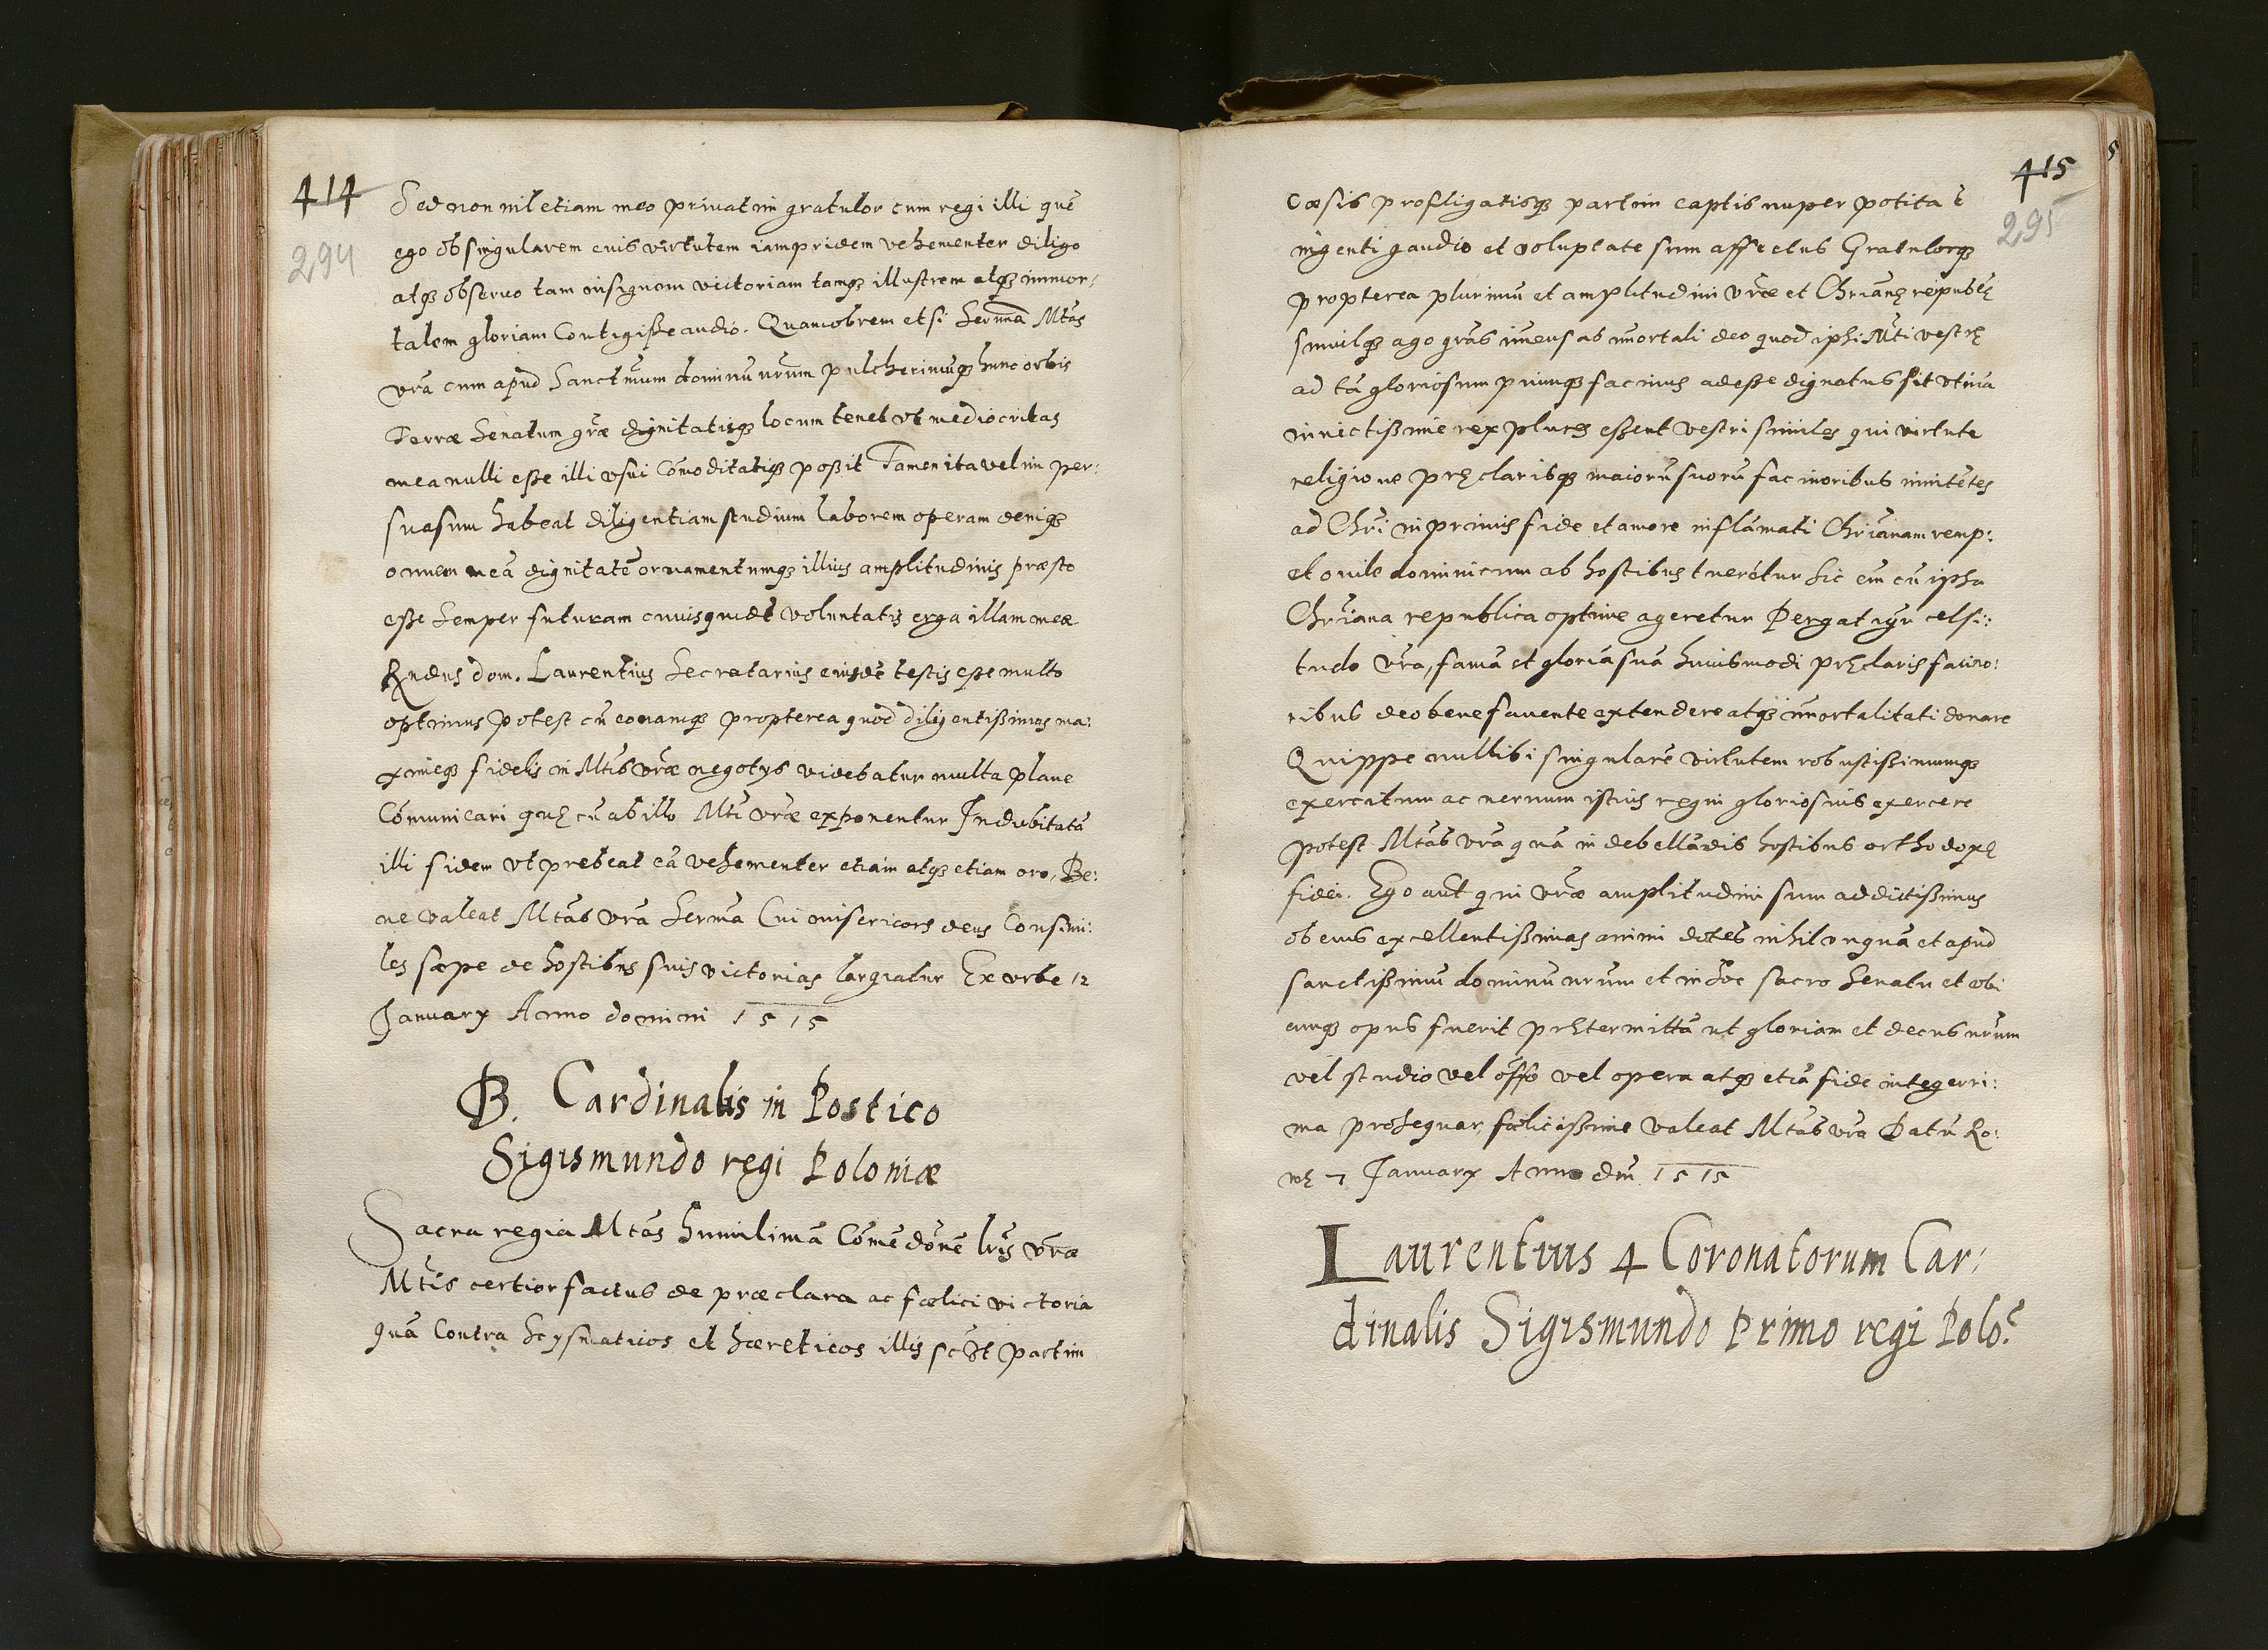 414
294
Sed non nil etiam meo priuatim gratulor cum regi illi quē
ego ob singularem euis virtutem iampridem vehementer diligo
atq̨ obseruo tam insignem victoriam tamq̨ illustrem atq̨ immor:
talem gloriam Contigiße audio. Quamobrem etsi Serm̃a Mtãs
vrã cum apud Sanctm̃um dominū nrũm pulcherimūq̨ hunc orbis
Terræ Senatum grãæ dignitatisq̨ locum tenet vt mediocritas
mea nulli eße illi vsui Cōmoditatiq̨ poßit Tamen ita velim per:
suasum habeat diligentiam studium laborem operam deniq̨
omnem meā dignitatē ornamentumq̨ illius amplitudinis præsto
eße semper futuram cuius quidē voluntatis erga illam meæ
Rndus dom. Laurentius Secretarius eiusdē testis eße multo
optimus potest cū eo namq̨ propterea quod diligentißimus ma:
ximeq̨ fidelis in Mtis vrãæ negotys videbatur multa plane
Cōmunicari quę cū ab illo Mti vrãæ exponentur Indubitatā
illi fidem vt prebeat eā vehementer etiam atq̨ etiam oro, Be:
ne valeat Mtãs vrã Serm̃a Cui misericors deus Consimi:
les sæpe de hostibus suis victorias largiatur Ex vrbe 12
January Anno domini 1515
B. Cardinalis in Postico
Sigismundo regi Poloniæ
Sacra regia Mtãs humilimā Cōmēdōnē lrĩs vrãæ
Mtĩs certior factus de præclara ac fœlici victoria
quā Contra scysmaticos et hæreticos illis partim
415
295
Cæsis profligatisq̨ partim captis nuper potita ē
ingenti gaudio et voluptate sum affectus Gratulorq̨
propterea plurimū et amplitudini vrãæ et Chrĩanę reipublę
simulq̨ ago grãs īmensas īmortali deo quod ipsi Mti vestrę
ad tā gloriosum piumq̨ facinus adeße dignatus sit vtinā
inuictißime rex plures eßent vestri similes qui virtute
religione pręclarisq̨ maiorū suorū facinoribus innitētes
ad Chrĩ in primis fide et amore inflāmati Chrĩanam remp:
et ouile dominicum ab hostibus tuerētur Sic em̃ cū ipsa
Chrĩana republica optime ageretur Pergat igr̃ celsi:
tudo vrã, famā et gloriā suā huiusmodi pręclaris facino:
ribus deo bene fauente extendere atq̨ īmortalitati donare
Quippe nullibi singularē virtutem robustißimumq̨
exercitum ac neruum istius regni gloriosius exercere
potest Mtãs vrã quā in debellādis hostibus orthodoxę
fidei. Ego aut̃ qui vrãæ amplitudini sum addictißimus
ob eius excellentißimas animi dotes nihil vnquā et apud
sanctißimū dominū nrũm et in hoc sacro Senatu et vbi
cumq̨ opus fuerit prętermittā ut gloriam et decus nrũm
vel studio vel offõ vel opera atq̨ etiā fide integerri:
ma prosequar, fœlicißime valeat Mtãs vrã Datū Ro:
mę 7 January Anno dnĩ 1515
Laurentius 4 Coronatorum Car:
dinalis Sigismundo Primo regi Polo: